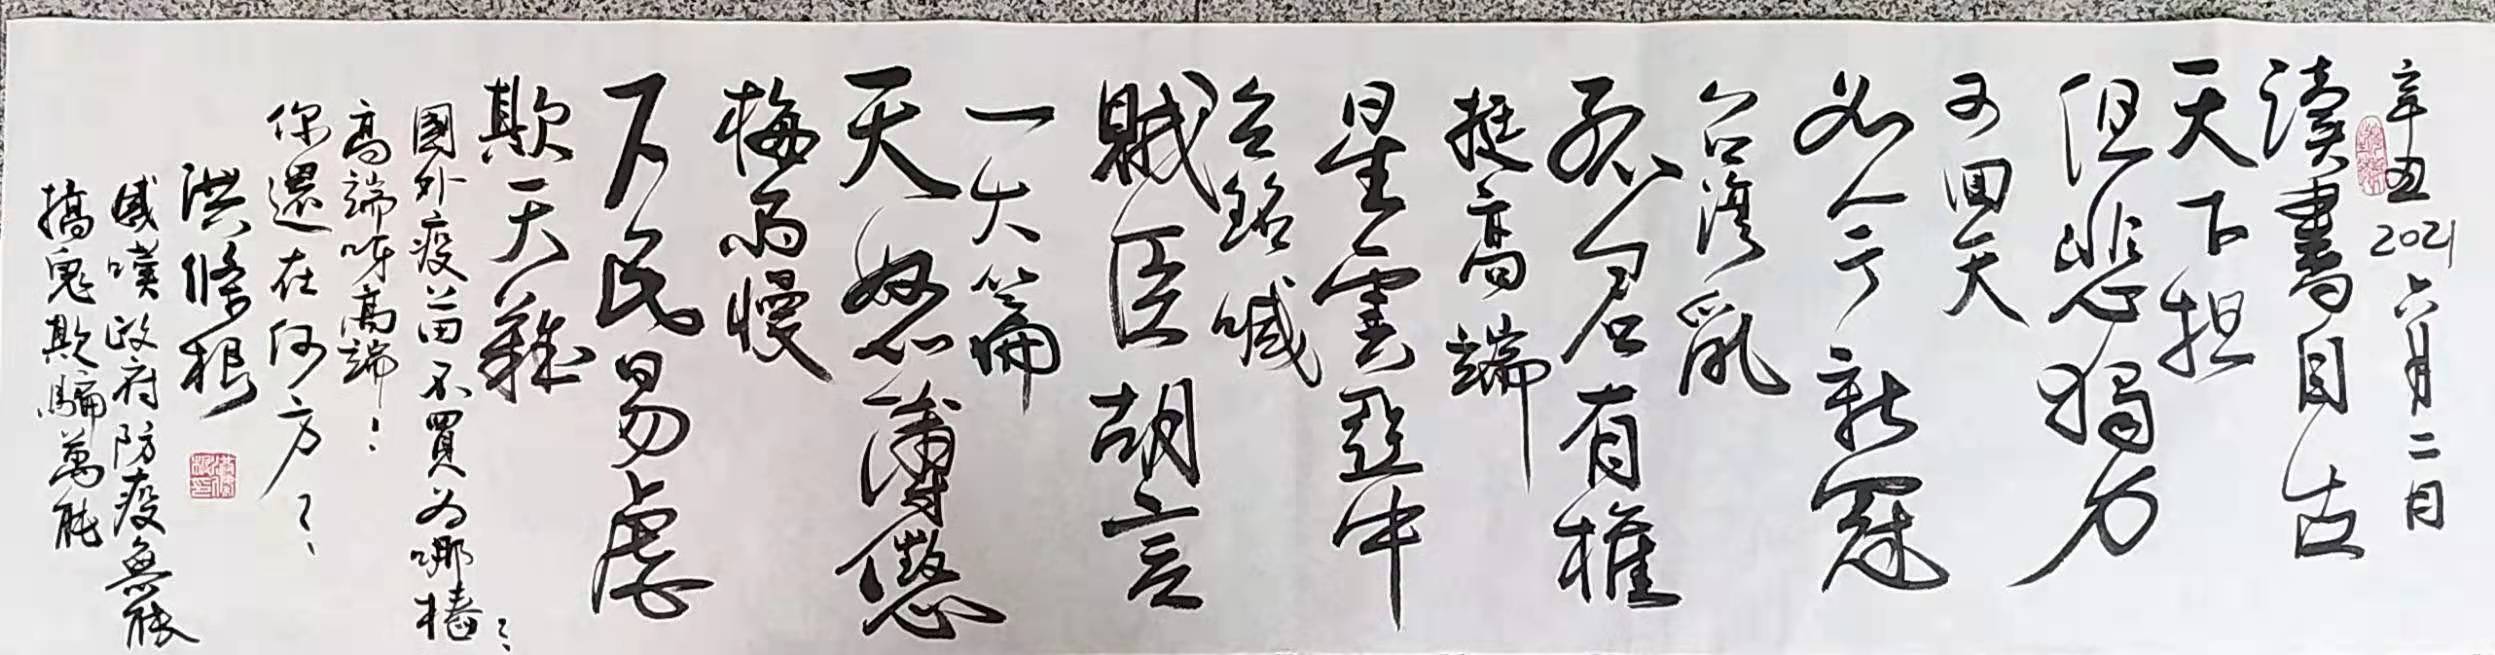 辛丑2021六月二日
讀書自古
天下担
但悲獨力
不回天
如今新冠
台灣亂
君有權
挺高端
星雲亞中
念銘喊
賊臣胡言
一大篇
天怒薄懲
梅雨慢
下民易虐
欺天難
國外疫苗不買為哪樁？
高端呀高端！
你還在何方？
洪修根
感嘆政府防疫無能
搞鬼欺騙萬能